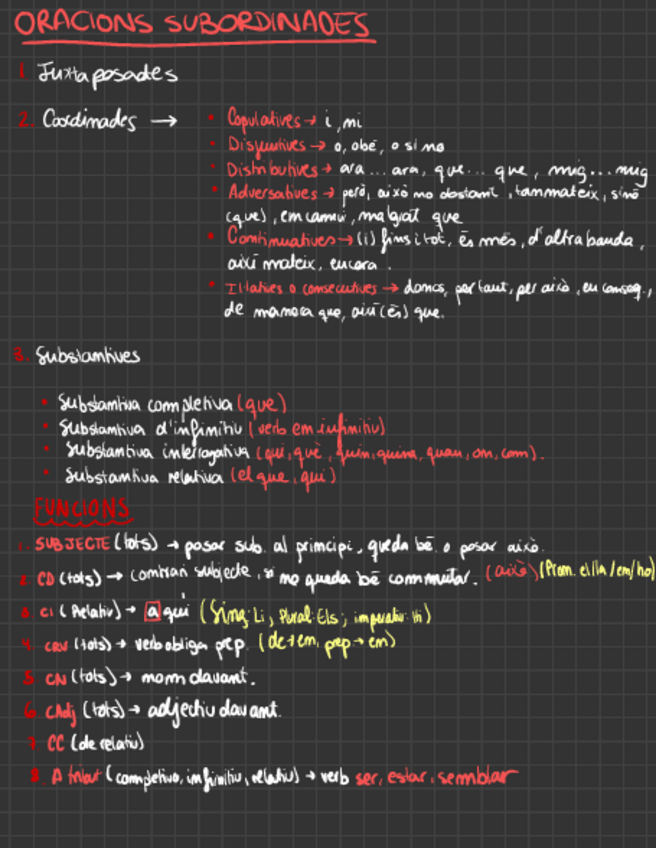 ORACIONS SUBORDINADES
1. Juxtaposades
2. Coordinades →
• Copulatives → i, ni
• Disjuntives → o, obé, o si no
• Distributives → ara... ara, que... que, mig... mig
• Adversatives → però, això no obstant, tanmateix, sinó
(que), en canvi, malgrat que
• Continuatives → (i) fins i tot, és més, d'altra banda,
així mateix, encara.
• Il·latives o consecutives → doncs, per tant, per això, en conseq.,
de manera que, així (és) que.
3. Substantives
• Substantiva completiva (que)
• Substantiva d'infinitiu (verb en infinitiu)
• Substantiva interrogativa (qui, què, quin, quina, quan, on, com).
• Substantiva relativa (el que, qui)
FUNCIONS
1. SUBJECTE (tots) → posar sub. al principi, queda bé. o posar això.
2. CD (tots) → canviar subjecte, si no queda bé commutar. (això) (Pron. el/la/en/ho)
3. CI (Relatiu) → a qui (Sing: Li, Plural: Els; imperatiu: hi)
4. CRV (tots) → verb obliga prep. (de → en, prep → en)
5. CN (tots) → nom davant.
6. CAdj (tots) → adjectiu davant.
7. CC (de relatiu)
8. Atribut (completiva, infinitiu, relatiu) → verb ser, estar, semblar